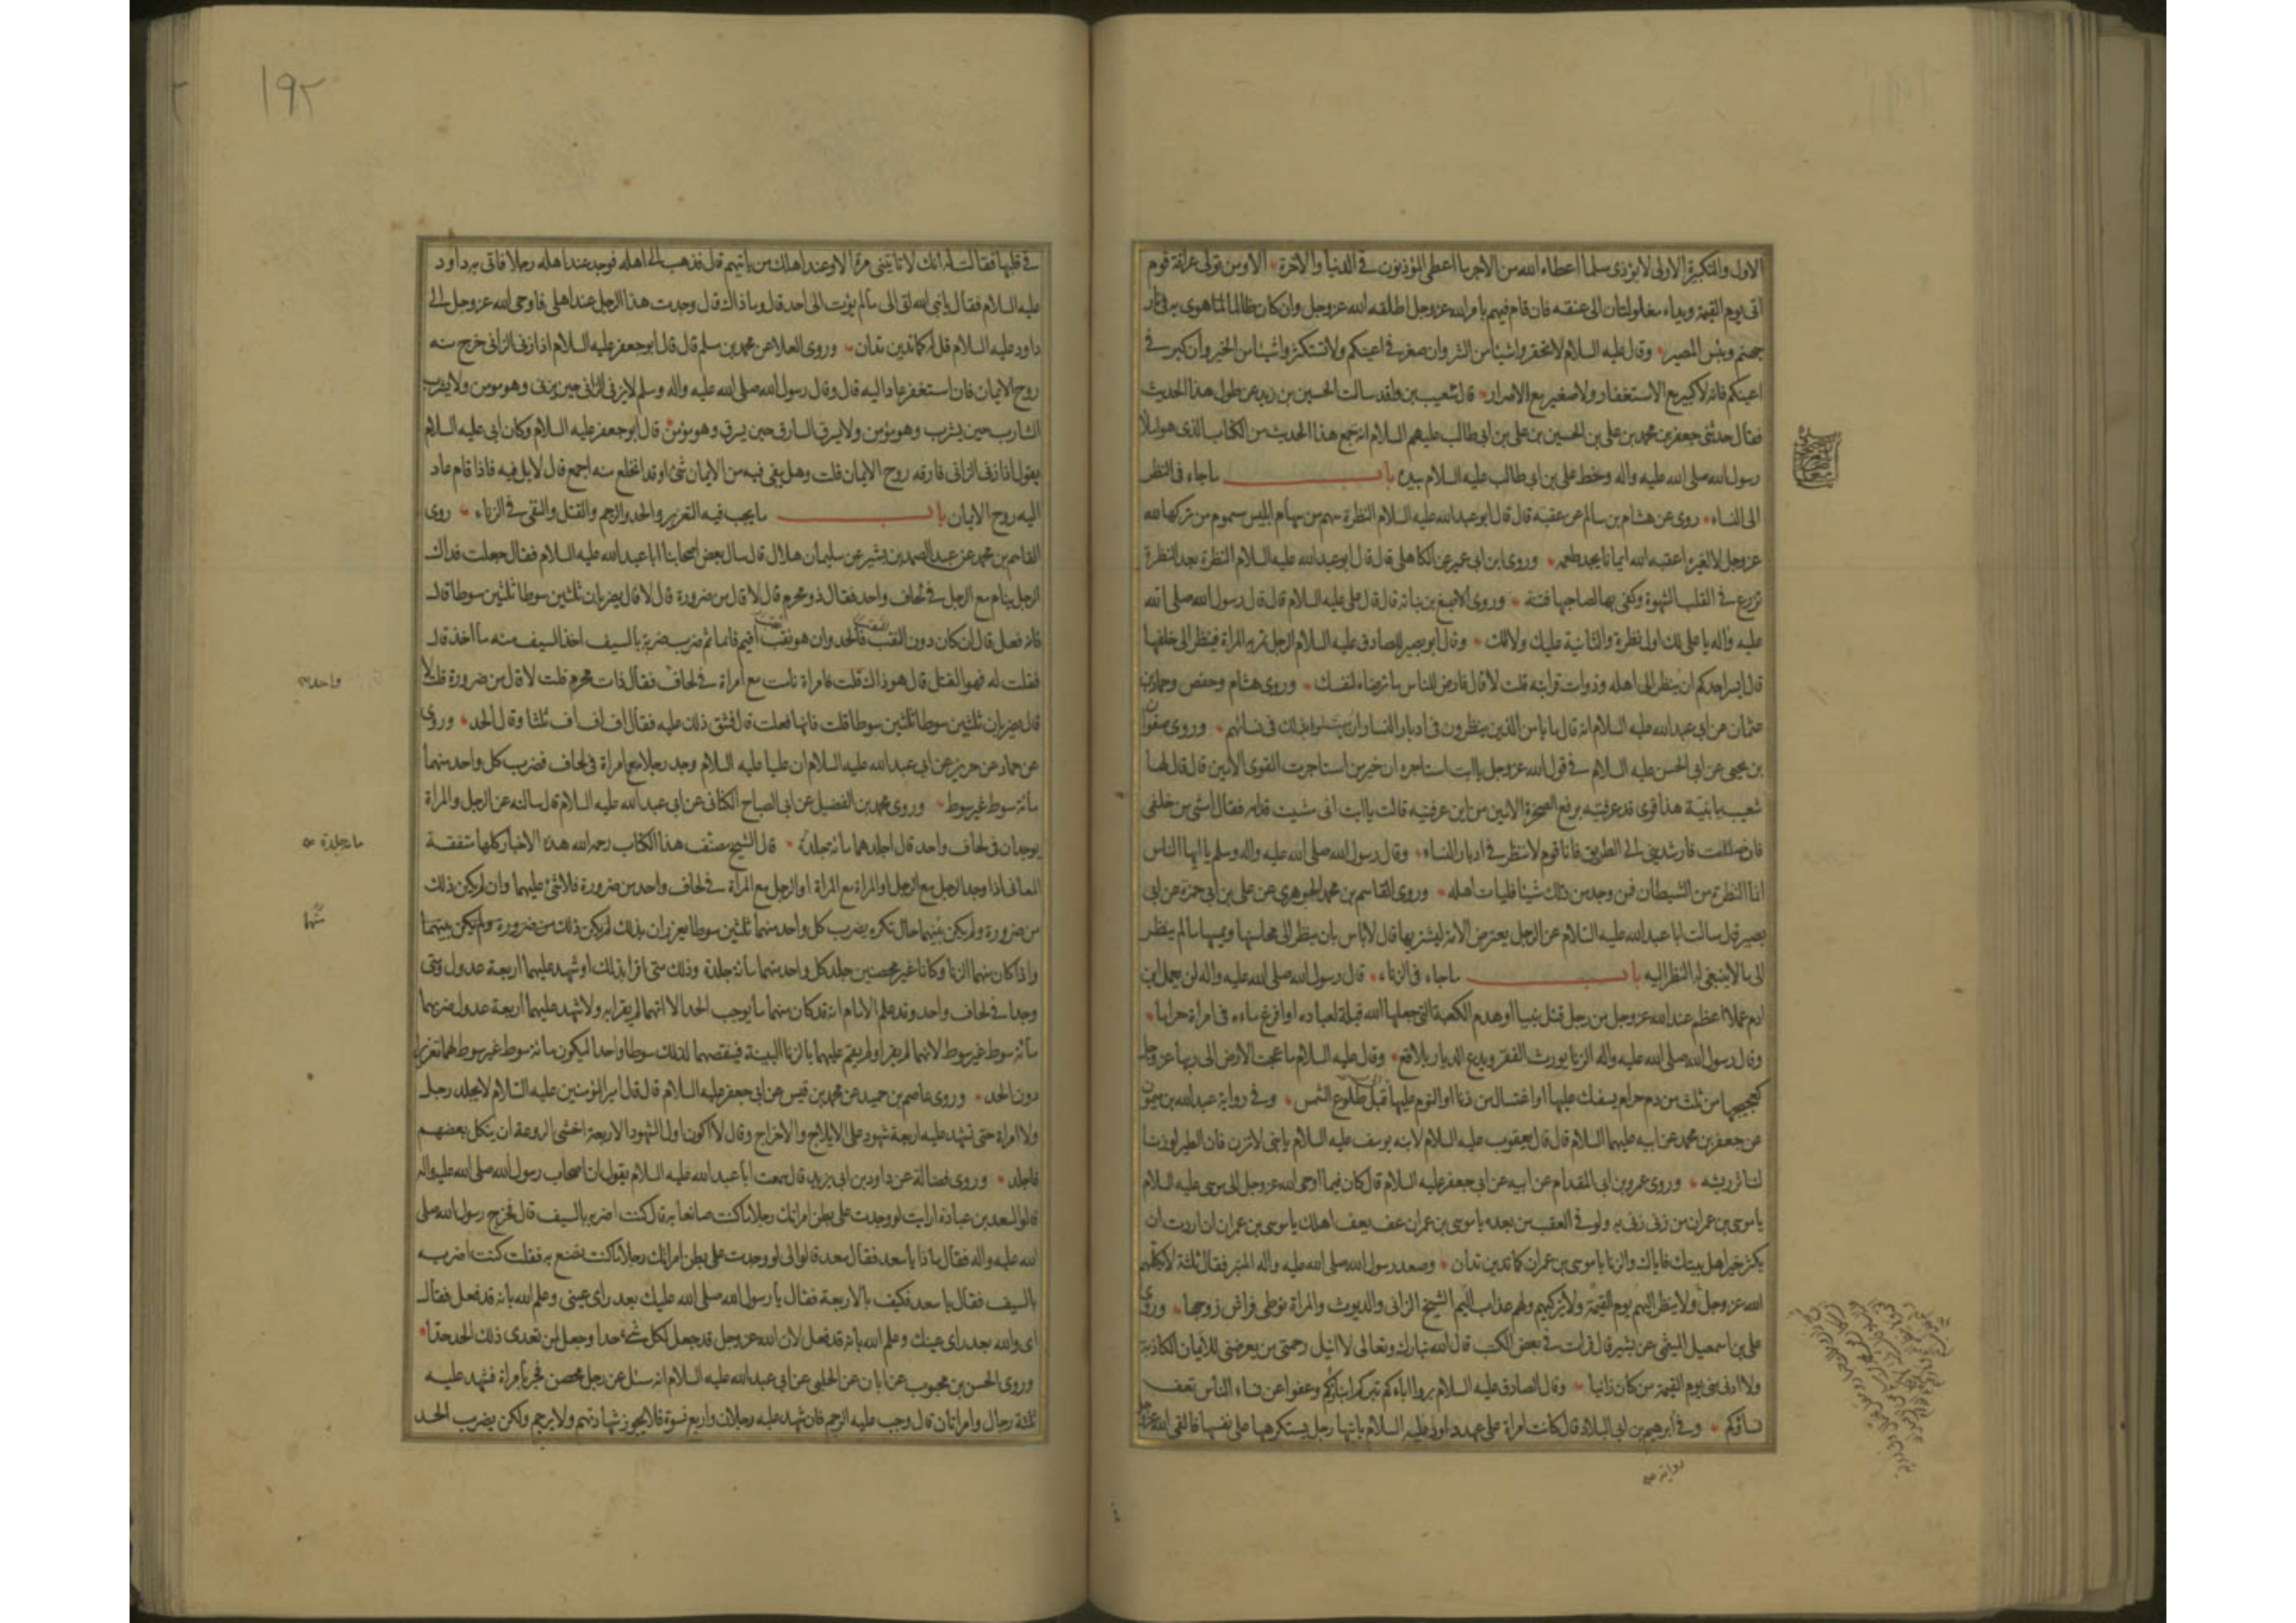 الاول والتكبيرة الاولى لا يؤذى مسلما اعطاه الله من الاجر ما اعطى المؤذنون فى الدنيا والآخرة الا ومن تولى عرافة قوم
اتى يوم القيمة ويداه مغلولتان الى عنقه فان قام فيهم بامر الله عزوجل اطلقه الله عزوجل وان كان ظالما هوى به فى نار
جهنم وبئس المصير وقال عليه السلام لا تحقروا شيئا من الشر وان صغر فى اعينكم ولا تستكثروا شيئا من الخير وان كبر فى
اعينكم فانه لا كبير مع الاستغفار ولا صغير مع الاصرار قال شعيب بن واقد سالت الحسين بن زيد عن طول هذا الحديث
فقال حدثنى جعفر بن محمد بن على بن الحسين بن على بن ابى طالب عليهم السلام انه جمع هذا الحديث من الكتاب الذى هو املاء
رسول الله صلى الله عليه واله وخط على بن ابى طالب عليه السلام بيده باب ما جاء فى النظر
الى النساء روى عن هشام بن سالم عن عقبة قال قال ابو عبد الله عليه السلام النظرة سهم من سهام ابليس مسموم من تركها لله
عزوجل لا لغيره اعقبه الله ايمانا يجد طعمه وروى ابن ابى عمير عن الكاهلى قال قال ابو عبد الله عليه السلام النظرة بعد النظرة
تزرع فى القلب الشهوة وكفى بها لصاحبها فتنة وروى الاصبغ بن نباتة قال قال على عليه السلام قال قال رسول الله صلى الله
عليه واله يا على لك اول نظرة والثانية عليك ولا لك وقال ابو بصير للصادق عليه السلام الرجل تمر به المراة فينظر الى خلفها
قال ايسر احدكم ان ينظر الى اهله وذوات قرابته قلت لا قال فارض للناس ما ترضاه لنفسك وروى هشام وحفص وحماد بن
عثمان عن ابى عبد الله عليه السلام انه قال ما يامن الذين ينظرون فى ادبار النساء ان يبتلوا بذلك فى نسائهم وروى صفوان
بن يحيى عن ابى الحسن عليه السلام فى قول الله عزوجل يا ابت استاجره ان خير من استاجرت القوى الامين قال قال لها
شعيب يا بنية هذا قوى قد عرفتيه برفع الصخرة الامين من اين عرفتيه قالت يا ابت انى مشيت قدامه فقال امشى من خلفى
فان ضللت فارشدينى الى الطريق فانا قوم لا ننظر فى ادبار النساء وقال رسول الله صلى الله عليه واله وسلم يا ايها الناس
انما النظرة من الشيطان فمن وجد من ذلك شيئا فليات اهله وروى القاسم بن محمد الجوهرى عن على بن ابى حمزة عن ابى
بصير قال سالت ابا عبد الله عليه السلام عن الرجل يعترض الامة ليشتريها قال لا باس بان ينظر الى محاسنها ويمسها ما لم ينظر
الى ما لا ينبغى له النظر اليه باب ما جاء فى الزناء قال رسول الله صلى الله عليه واله لن يعمل ابن
ادم عملا اعظم عند الله عزوجل من رجل قتل نبيا او هدم الكعبة التى جعلها الله قبلة لعباده او افرغ ماءه فى امراة حراما
وقال رسول الله صلى الله عليه واله الزنا يورث الفقر ويدع الديار بلاقع وقال عليه السلام ما عجت الارض الى ربها عزوجل
كعجيجها من ثلث من دم حرام يسفك عليها او اغتسال من زنا او النوم عليها قبل طلوع الشمس وفى رواية عبد الله بن ميمون
عن جعفر بن محمد عن ابيه عليهما السلام قال قال يعقوب عليه السلام لابنه يوسف عليه السلام يا بنى لا تزن فان الطير لو زنا
لتناثر ريشه وروى عمرو بن ابى المقدام عن ابيه عن ابى جعفر عليه السلام قال كان فيما اوحى الله عزوجل الى موسى عليه السلام
يا موسى بن عمران من زنى زنى به ولو فى العقب من بعده يا موسى بن عمران عف يعف اهلك يا موسى بن عمران ان اردت ان
يكثر خير اهل بيتك فاياك والزنا يا موسى بن عمران كما تدين تدان وصعد رسول الله صلى الله عليه واله المنبر فقال ثلثة لا يكلمهم
الله عزوجل ولا ينظر اليهم يوم القيمة ولا يزكيهم ولهم عذاب اليم الشيخ الزانى والديوث والمراة توطى فراش زوجها وروى
على بن اسمعيل الميثمى عن بشير قال قرات فى بعض الكتب قال الله تبارك وتعالى لا انيل رحمتى من يعرضنى للايمان الكاذبة
ولا ادنى منى يوم القيمة من كان زانيا وقال الصادق عليه السلام بروا اباءكم تبركم ابناؤكم وعفوا عن نساء الناس تعف
نساؤكم وفى ابرهيم بن ابى البلاد قال كانت امراة على عهد داود عليه السلام ياتيها رجل يستكرهها على نفسها فالقى الله عزوجل
رواية
١٩٢
فى قلبها فقالت له انك لا تاتينى مرة الا وعند اهلك من ياتيهم قال فذهب الى اهله فوجد عند اهله رجلا فاتى به داود
عليه السلام فقال يا نبى الله اتى الى ما لم يؤت الى احد قال وما ذاك قال وجدت هذا الرجل عند اهلى فاوحى الله عزوجل الى
داود عليه السلام قل له كما تدين تدان وروى العلاء عن محمد بن مسلم قال قال ابو جعفر عليه السلام اذا زنى الزانى خرج منه
روح الايمان فان استغفر عاد اليه قال وقال رسول الله صلى الله عليه واله وسلم لا يزنى الزانى حين يزنى وهو مومن ولا يشرب
الشارب حين يشرب وهو مؤمن ولا يسرق السارق حين يسرق وهو مؤمن قال ابو جعفر عليه السلام وكان ابى عليه السلام
يقول اذا زنى الزانى فارقه روح الايمان قلت وهل يبقى فيه من الايمان شئ او قد انخلع منه اجمع قال لا بل فيه فاذا قام عاد
اليه روح الايمان باب ما يجب فيه التعزير والحد والرجم والقتل والنفى فى الزناء روى
القاسم بن محمد عن عبد الصمد بن بشير عن سليمان بن هلال قال سال بعض اصحابنا ابا عبد الله عليه السلام فقال جعلت فداك
الرجل ينام مع الرجل فى لحاف واحد فقال ذو محرم قال لا قال من ضرورة قال لا قال يضربان ثلثين سوطا ثلثين سوطا قال
فانه فعل قال ان كان دون الثقب فالحد وان هو ثقب اقيم قائما ثم ضرب ضربة بالسيف اخذ السيف منه ما اخذ قال
فقلت له فهو القتل قال هو ذاك قلت فامراة نامت مع امراة فى لحاف فقال ذات محرم قلت لا قال من ضرورة قلت لا
قال يضربان ثلثين سوطا ثلثين سوطا قلت فانها فعلت قال فشق ذلك عليه فقال اف اف اف ثلثا وقال الحد وروى
عن حماد عن حريز عن ابى عبد الله عليه السلام ان عليا عليه السلام وجد رجلا مع امراة فى لحاف فضرب كل واحد منهما
مائة سوط غير سوط وروى محمد بن الفضيل عن ابى الصباح الكنانى عن ابى عبد الله عليه السلام قال سالته عن الرجل والمراة
يوجدان فى لحاف واحد قال اجلدهما مائة مجلدة قال الشيخ مصنف هذا الكتاب رحمه الله هذه الاخبار كلها متفقة
المعانى اذا وجد الرجل مع الرجل او المراة مع المراة او الرجل مع المراة فى لحاف واحد من ضرورة فلا شئ عليهما وان لم يكن ذلك
من ضرورة ولم يكن بينهما حال تكره يضرب كل واحد منهما ثلثين سوطا يعزران بذلك لم يكن ذلك من ضرورة ولم يكن بينهما
واذا كان منهما الزنا وكانا غير محصنين جلد كل واحد منهما مائة جلدة وذلك متى اقرا بذلك او شهد عليهما اربعة عدول ومتى
وجدا فى لحاف واحد وقد علم الامام انه قد كان منهما ما يوجب الحد الا انهما لم يقرا به ولا شهد عليهما اربعة عدول ضربهما
مائة سوط غير سوط لانهما لم يقرا ولم يقم عليهما بالزنا البينة فينقصهما لذلك سوطا واحدا ليكون مائة سوط غير سوط لهما تعزيرا
دون الحد وروى عاصم بن حميد عن محمد بن قيس عن ابى جعفر عليه السلام قال قال امير المؤمنين عليه السلام لا يجلد رجل
ولا امراة حتى تشهد عليه اربعة شهود على الايلاج والاخراج وقال لا اكون اول الشهود الاربعة اخشى الروعة ان ينكل بعضهم
فاجلد وروى فضالة عن داود بن ابى يزيد قال سمعت ابا عبد الله عليه السلام يقول ان اصحاب رسول الله صلى الله عليه واله
قالوا لسعد بن عبادة ارايت لو وجدت على بطن امراتك رجلا ما كنت صانعا به قال كنت اضربه بالسيف قال فخرج رسول الله صلى
الله عليه واله فقال ماذا يا سعد فقال سعد قالوا لى لو وجدت على بطن امراتك رجلا ما كنت تصنع به فقلت كنت اضربه
بالسيف فقال يا سعد فكيف بالاربعة فقال يا رسول الله صلى الله عليك بعد راى عينى وعلم الله بانه قد فعل فقال
اى والله بعد راى عينك وعلم الله بانه قد فعل لان الله عزوجل قد جعل لكل شئ حدا وجعل لمن تعدى ذلك الحد حدا
وروى الحسن بن محبوب عن ابان عن الحلبى عن ابى عبد الله عليه السلام انه سئل عن رجل محصن فجر بامراة فشهد عليه
ثلثة رجال وامراتان قال وجب عليه الرجم فان شهد عليه رجلان واربع نسوة فلا تجوز شهادتهم ولا يرجم ولكن يضرب الحد
واحد
مائة جلدة